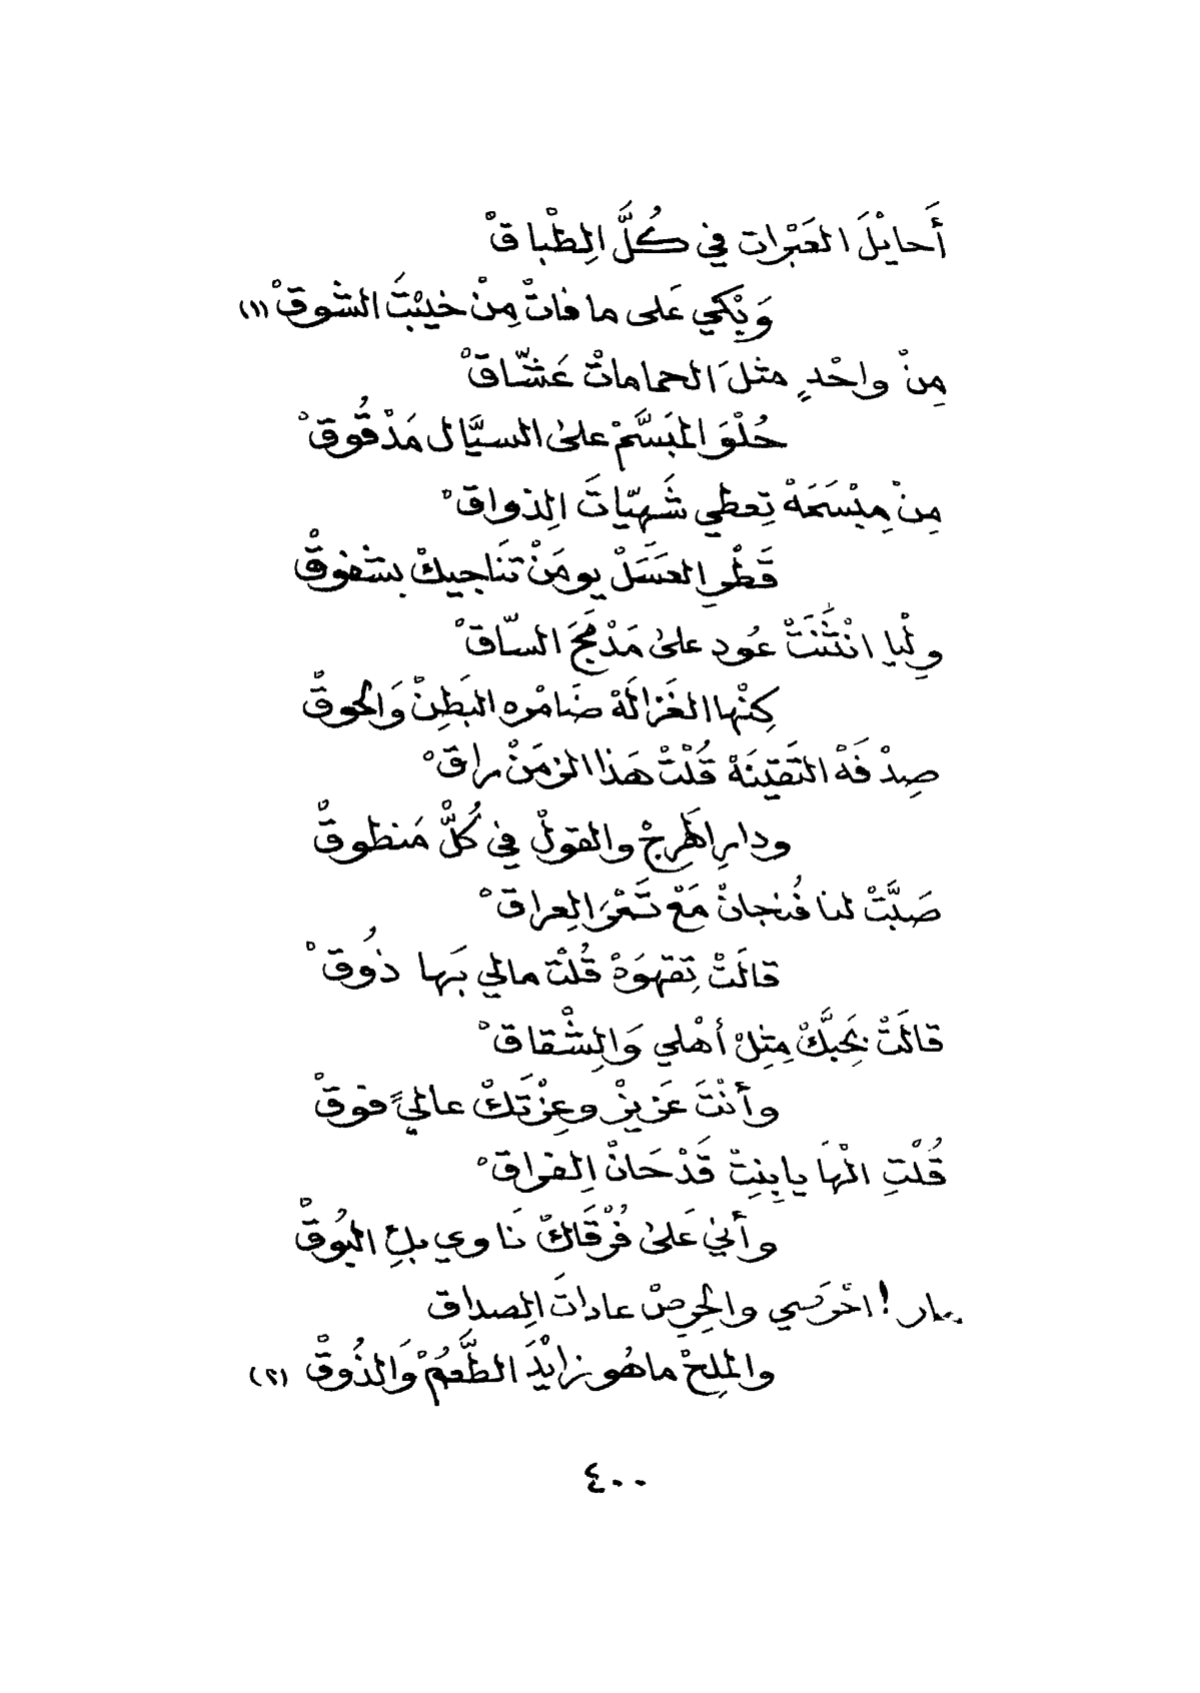 أَحايْلَ العَبْرات في كُلَّ الِطْباقْ
وَيْكي عَلى ما فاتْ مِنْ خيبْتَ الشوقْ (١)
مِنْ واحْدٍ مثلَ الحماماتْ عَشّاقْ
حُلْوَ المبَسَّمْ على السيَّال مَدْقُوقْ
مِنْ مِبْسَمَهْ تِعطي شَهِيّاتَ الِذواقْ
قَطْرِ العَسَلْ يومَنْ تنَاجيكْ بشفوقْ
ولْيا انْثَنَتْ عُودٍ على مَدْمَجَ السّاقْ
كِنْها الغَزالَهْ ضَامْره البَطِنْ وَالحوقْ
صِدْفَهْ التَقينَهْ قُلْتْ هَذا الزمَنْ راقْ
ودارِ الهَرِجْ والقولْ في كُلّ مَنطوقْ
صَبَّتْ لنا فُنجانْ مَعْ تَمْرَ العِراقْ
قالَتْ تِقهوَهْ قُلْت مالي بَها ذُوقْ
قالَتْ نِحِبَّكْ مِثِلْ أهْلي وَالِشْقاقْ
وأنْتَ عَزيزْ وعِزْتَكْ عاليٍ فوقْ
قُلْتِ الْها يابِنِتْ قَدْ حَانْ الِفراقْ
وأني عَلى فُرْقَاكْ نَاوي بلِ البُوقْ
اخْرَسي والحِرِصْ عاداتَ الِصداق
والمِلِحْ ماهُو زايْدَ الطَّعَمْ وَالذُوقْ (٢)
٤٠٠